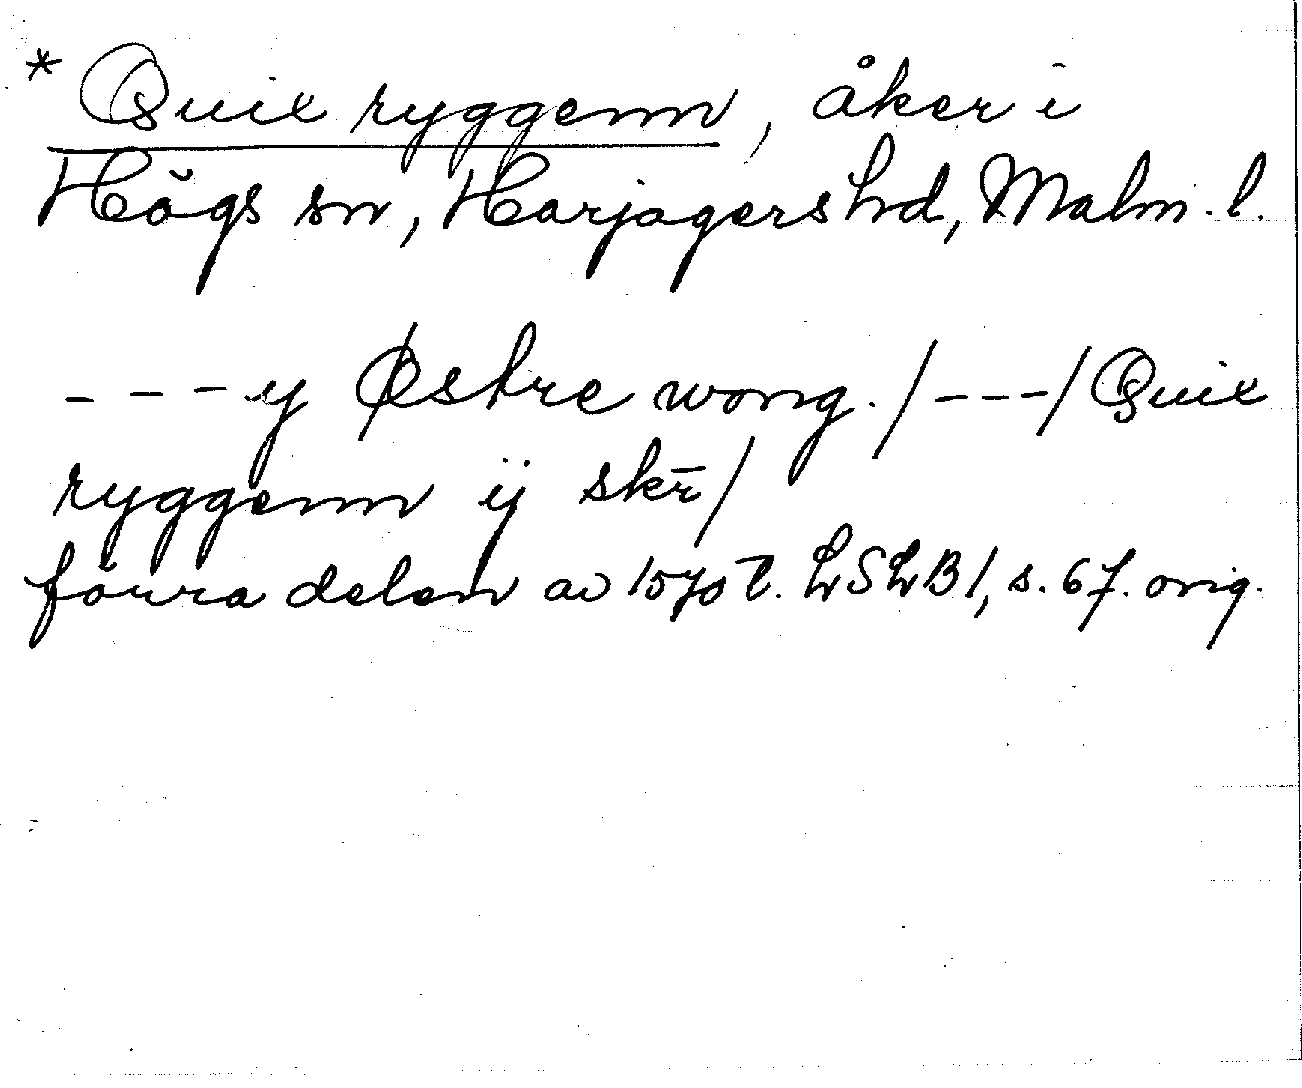 * Quix ryggenn, åker i
Högs sn, Harjagers hd, Malm. l.
- - - y Østre wong. / - - - / Quix
ryggenn ij skr̄ /
förra delen av 1570 t. LSLB 1, s. 67. orig.